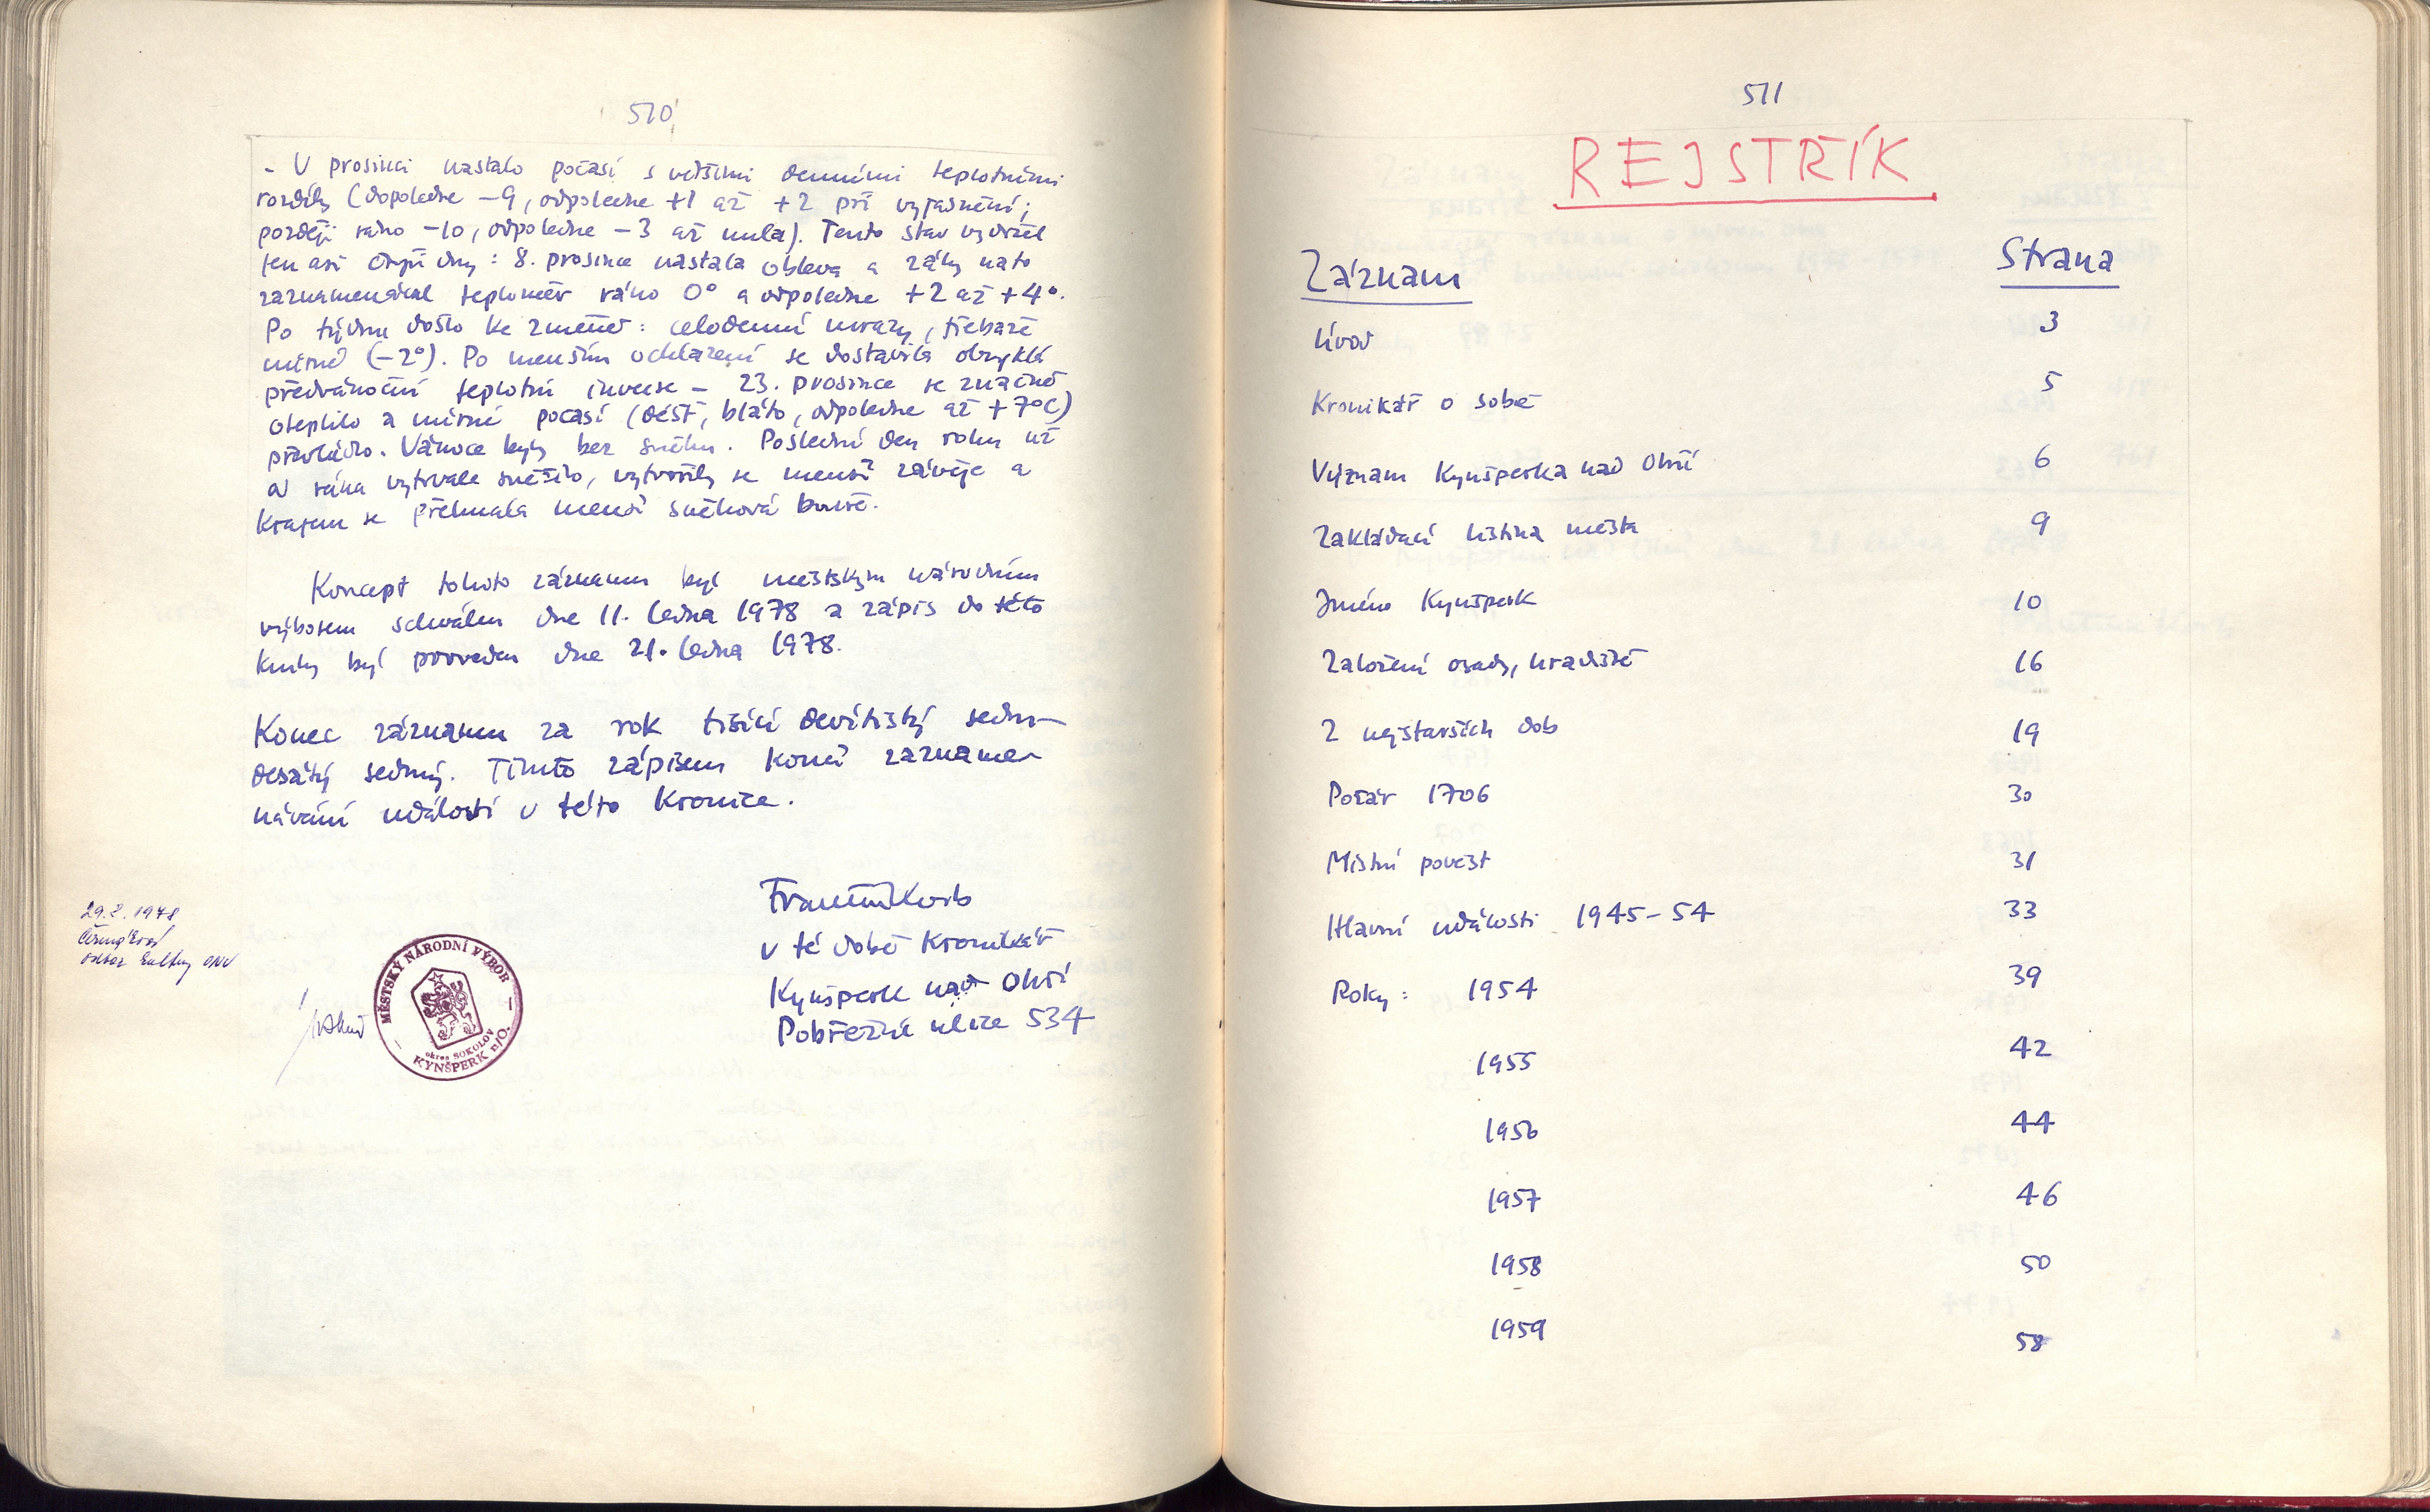 510
- V prosinci nastalo počasí s většími denními teplotními
rozdíly (dopoledne -9, odpoledne +1 až +2 při vyjasnění;
později ráno -10, odpoledne -3 až nula). Tento stav vydržel
jen asi čtyři dny: 8. prosince nastala obleva a záhy nato
zaznamenával teploměr ráno 0° a odpoledne +2 až +4°.
Po týdnu došlo ke změně: celodenní mrazy, třebaže
mírné (-2°). Po menším ochlazení se dostavila obvyklá
předvánoční teplotní inverse - 23. prosince se značně
oteplilo a mírné počasí (déšť, bláto, odpoledne až +7°C)
převládlo. Vánoce byly bez sněhu. Poslední den roku už
od rána vytrvale sněžilo, vytvořily se menší závěje a
krajem se přehnala menší sněhová bouře.
Koncept tohoto záznamu byl městským národním
výborem schválen dne 11. ledna 1978 a zápis do této
knihy byl proveden dne 21. ledna 1978.
Konec záznamu za rok tisící devítistý sedm-
desátý sedmý. Tímto zápisem končí zazname-
návání událostí v této kronice.
František Korb
v té době kronikář
Kynšperk nad Ohří
Pobřežní ulice 534
29.8.1978
odbor kultury ONV
MĚSTSKÝ NÁRODNÍ VÝBOR
okres SOKOLOV
KYNŠPERK n/O.
511
REJSTŘÍK
Záznam Strana
Úvod 3
Kronikář o sobě 5
Význam Kynšperka nad Ohří 6
Zakládací listina města 9
Jméno Kynšperk 10
Založení osady, hradiště 16
Z nejstarších dob 19
Požár 1706 30
Místní pověst 31
Hlavní události 1945-54 33
Roky: 1954 39
1955 42
1956 44
1957 46
1958 50
1959 58